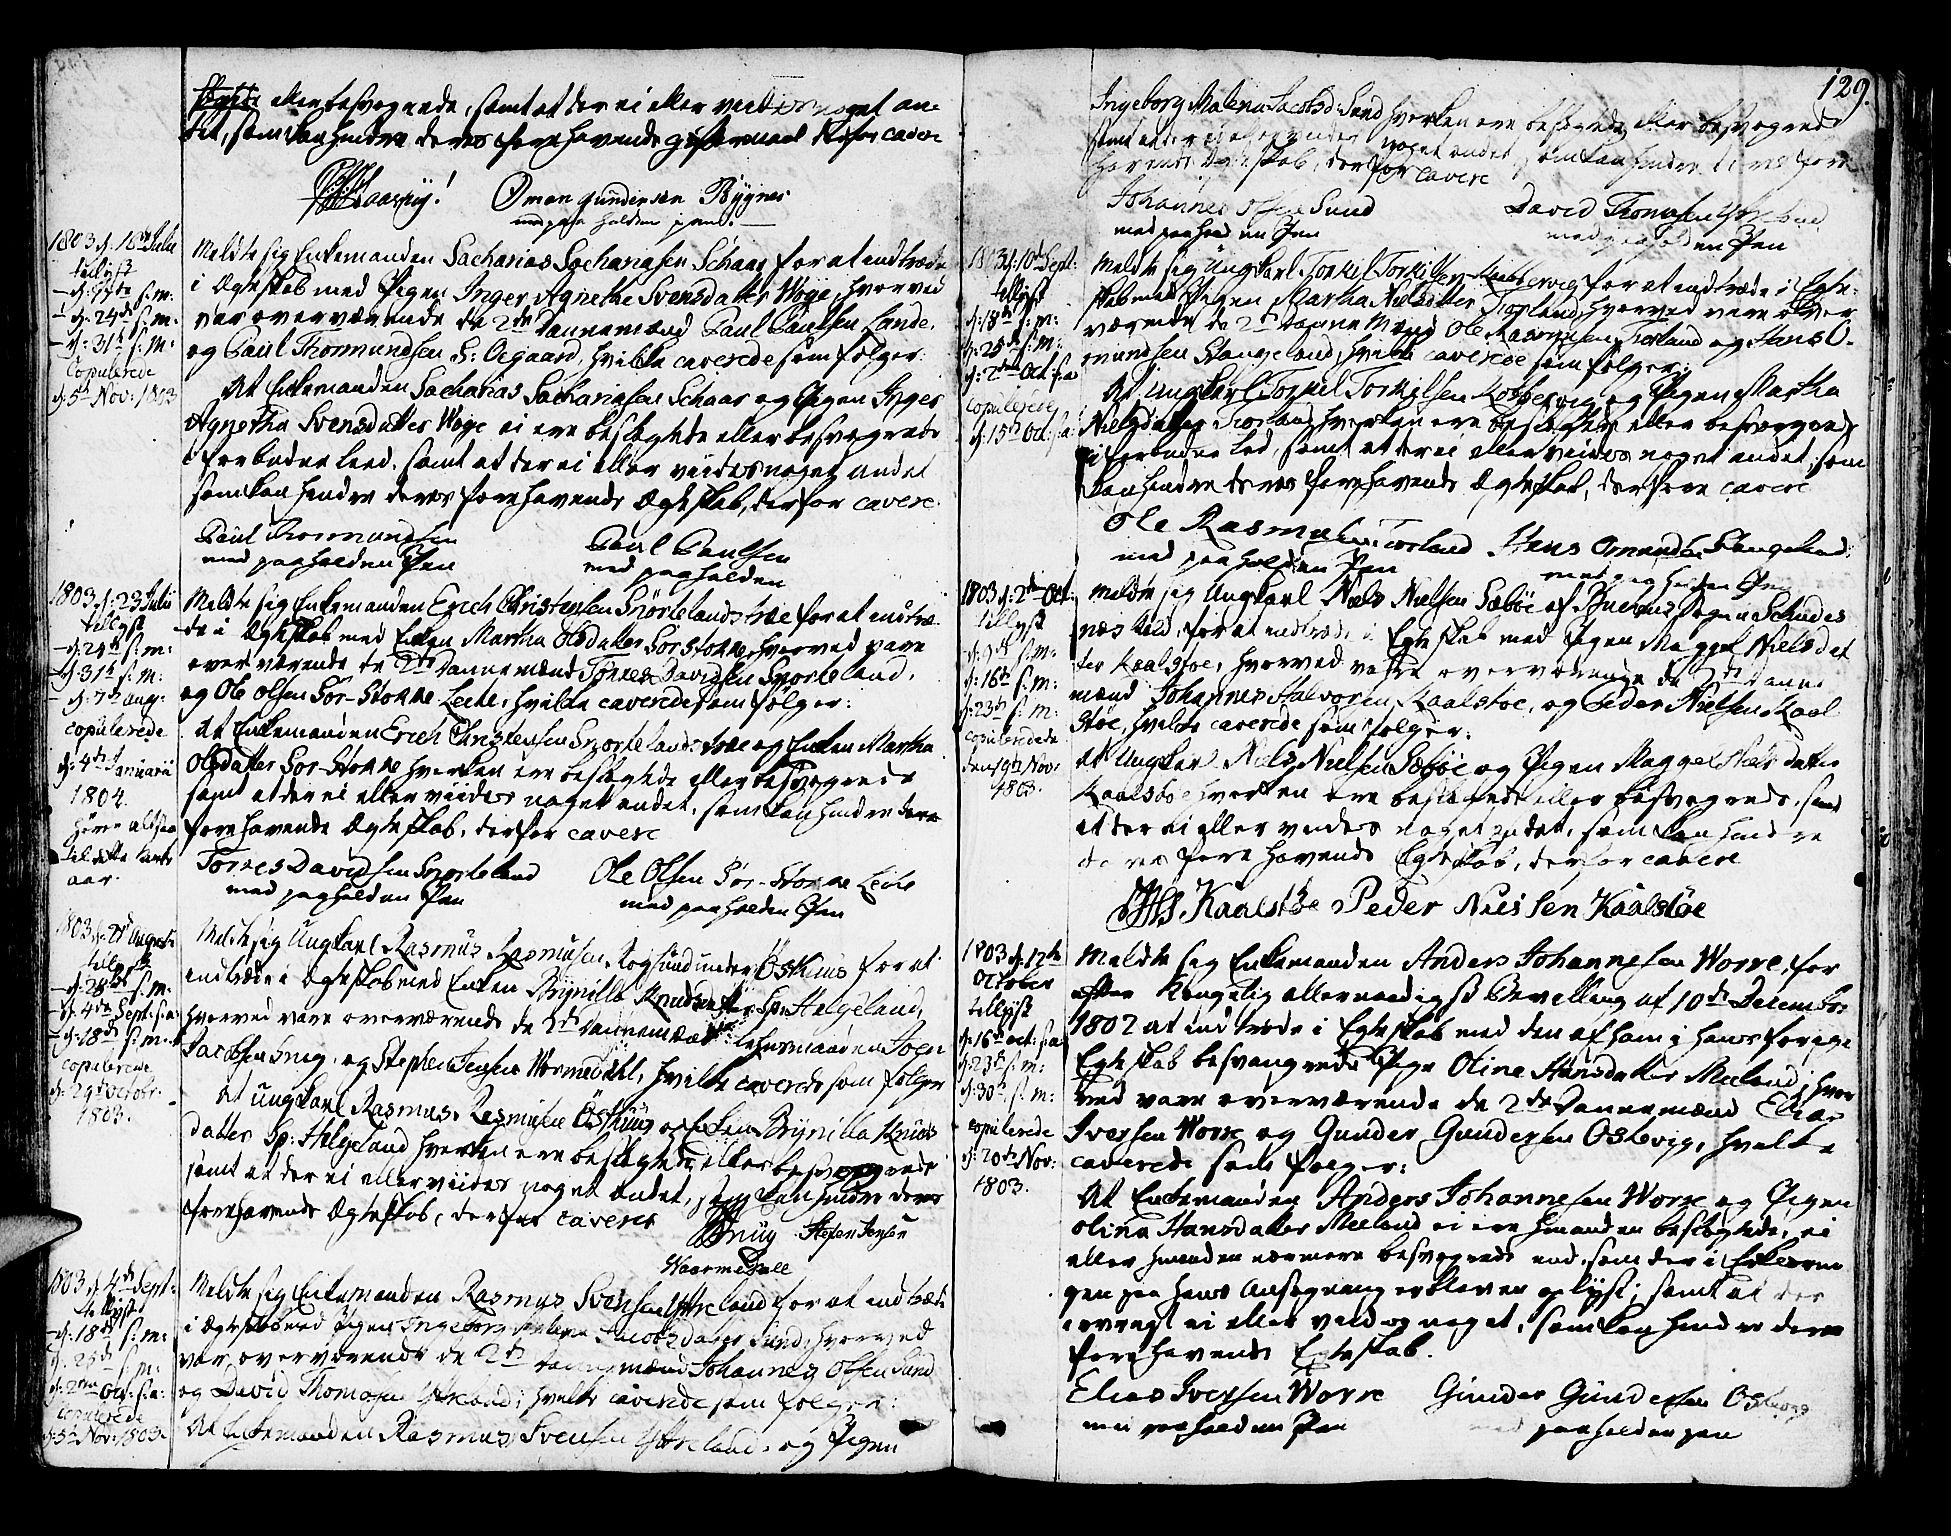 eller besvogrede, samt at der ei eller vides noget an-
det, som kan hindre deres forehavende giftermaal derfor cavere
Omen Gundersen Bygnes
med paa holden pen.
1803 d: 18de Julii
tillyst
d: 17de s: m:
d: 24de s: m:
d: 31te s: m:
Copulerede
d: 5te Nov: 1803
Meldte sig Enkemanden Sacharias Sachariasen Schaar for at indtræde
i Ægteskab med Pigen Inger Agnethe Svensdatter Woge, hvorved
var overværende de 2de Dannemænd Paul Paulsen Lande,
og Paul Thormundsen S: Oegaard, hvilke caverede som følger:
At Enkemanden Sacharias Sachariasen Schaar og Pigen Inger
Agnetha Svensdatter Woge ei ere beslægtede eller besvogrede
i forbuden Leed, samt at der ei eller viides noget andet
som kan hindre deres forehavende Ægteskab, derfor cavere
Paul Thormundsen
med paaholden Pen
Paul Paulsen
med paaholden
1803 d: 23 Julii
tillyst
d: 24de s: m:
d: 31te s: m:
d: 7de Aug:
copulerede
d: 4de Januarii
1804.
hører altsaa
til dette kirke
aar.
Meldte sig Enkemanden Erich Christensen Snørtelandstræe for at indtræ-
de i Ægteskab med Enken Martha Olsdatter Sør Stokke, hvorved vare
overværende de 2de Dannemænd Torres Davidsen Snorteland,
og Ole Olsen Sør-Stokke Leete, hvilke caverede som følger:
At Enkemanden Erich Christensen Snorteland: træe og Enken Martha
Olsdatter Sør-Stokke hverken ere beslægtede eller besvogrede
samt at der ei eller viides noget andet, som kan hindre deres
forehavende Ægteskab, derfor cavere
Torres Davidsen Snorteland
med paaholden Pen
Ole Olsen Sør-Stokke Leete
med paaholden Pen
1803 d: 21 August
tillyst
d: 28de s: m:
d: 4de Sept: s: a:
d: 18de s: m:
copulerede
d: 29de Octobr.
1803.
Meldte sig Ungkarl Rasmus Rasmusen Røgsund under Öskiiis for at
indtræde i Ægteskab med Enken Brynilla Knudsdatter Sp: Helgeland,
hvorved vare overværende de 2de Dannemænd: Lehnsmanden Soen
Jacobsen Snug og Stephen Jensen Wormedahl, hvilke caverede som følger
At Ungkarl Rasmus Rasmusen Öskiiis og Enken Brynilla Knuds
datter Sp: Helgeland hverken ere beslægtede eller besvogrede
samt at der ei eller viides noget andet, som kan hindre deres
forehavende Ægteskab, derfor caverer
Snug Stefen Jensen
Waarmedall
1803 d: 4de Sept:
tillyst
d: 18de s: m:
d: 25de s: m:
d: 2den Oct: s: a:
Copulerede
d: 5te Nov: 1803.
Meldte sig Enkemanden Rasmus Svensen Ytreland for at indtræde
i Ægteskab med Pigen Ingeborg Malena Jacobsdatter Sund, hvorved
var overværende de 2de Dannemænd Johannes Olsen Sund
og David Thomasen Ytreland, hvilke caverede som følger:
At Enkemanden Rasmus Svensen Ytreland og Pigen
129.
Ingeborg Malena Jacobsd: Sund hverken ere beslægtede eller besvogrede
samt at der ei eller vides noget andet, som kan hindre deres fore
havende Ægteskab, derfor cavere
Johannes Olsen Sund
med paaholden Pen
David Thomasen Ytreland
med paaholden Pen
1803 d: 10de Sept:
tillyst
d: 18de s: m:
d: 25de s: m:
d: 2den Oct: s: a
copulerede
d: 15de Oct: s: a:
Meldte sig Ungkarl Torkel Torkelsen Kobbervig for at indtræde i Egte-
skab med Pigen Martha Nielsdatter Torland, hvorved vare over
værende de 2de Danne Mænd Ole Rasmusen Torland og Hans O-
mundsen Stangeland, hvilke caverede som følger:
At Ungkarl Torkel Torkelsen Kobbervig og Pigen Martha
Nielsdatter Torland hverken ere beslægtede eller besvogrede
i forbuden Led, samt at der ei eller viides noget andet, som
kan hindre deres forehavende Ægteskab, derfore cavere
Ole Rasmusen Torland
med paaholden Pen
Hans Omundsen Stangeland
med paa holden Pen
1803 d: 2den Oct:
tillyst
d: 9de s: m:
d: 16de s: m:
d: 23de s: m:
copulerede
den 19de Nov:
1803.
Meldte sig Ungkarl Niels Nielsen Sæbøe af Buchens Sogn Schudes
næs Geld, for at indtræde i Egteskab med Pigen Maggel Nielsdat
ter Kaalstøe, hvorved vare overværende de 2de Danne
mænd Johannes Halvorsen Kaalstøe, og Peder Nielsen Kaal
støe, hvilke caverede som følger:
At Ungkarl Niels Nielsen Sæbøe og Pigen Maggel Niels datter
Kaalstøe hverken ere beslægtede eller besvogrede, samt
at der ei eller vides noget andet, som kan hindre
deres forehavende Egteskab, derfor cavere
JHS. Kaalstøe Peder Nielsen Kaalstøe
1803 d: 12te
October
tillyst
d: 16de oct: s: a
d: 23de s: m:
d: 30te s: m:
copulerede
d: 20de Nov:
1803.
Meldte sig Enkemanden Anders Johannesen Worre, for
efter Kongelig allernaadigst Bevelling af 10de Decembr:
1802 at indtræde i Egteskab med den af ham i hans forrige
Egteskab besvangrede Pige Olina Hansdatter Meeland, hvor
ved vare overværende de 2de Dannemænd Elias
Iversen Worre og Gunder Gundersen Ostevig, hvilke
caverede som følger:
At Enkemanden Anders Johannesen Worre og Pigen
Olina Hansdatter Meeland ei ere hinanden beslægtede, ei
eller hinanden nærmere besvogrede end, som der i Erklærin
gen paa hans Ansøgning er bleven oplyst; samt at der
iøvrigt ei eller veed og noget, som kan hindre deres
forehavende Egteskab.
Elias Iversen Worre
med paaholden Pen
Gunder Gundersen Ostevig
med paaholden pen